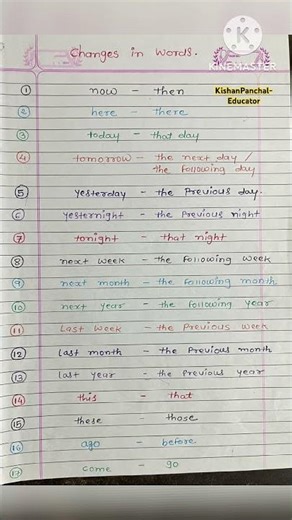 KINEMASTER
Changes in Words.
① now - then
KishanPanchal-
Educator
② here - there
③ today - that day
④ tomorrow - the next day /
the following day
⑤ yesterday - the Previous day.
⑥ yesternight - the Previous night
⑦ tonight - that night
⑧ next week - the Following week
⑨ next month - the Following month
⑩ next year - the Following year
⑪ Last week - the Previous week
⑫ last month - the Previous month
⑬ last year - the Previous year
⑭ this - that
⑮ these - those
⑯ ago - before
⑰ come - go